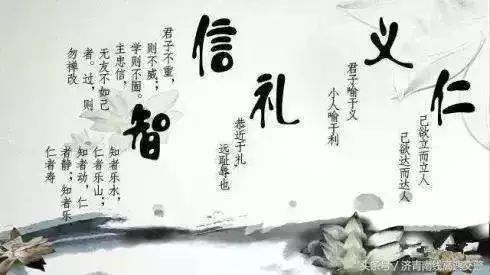 仁
己欲立而立人
己欲达而达人
义
君子喻于义
小人喻于利
礼
恭近于礼
远耻辱也
信
君子不重，
则不威；
学则不固。
主忠信，
无友不如己
者。过，则
勿禅改
智
知者乐水，
仁者乐山；
知者动，仁
者静；知者乐
仁者寿
头条号／济青南线高速交警